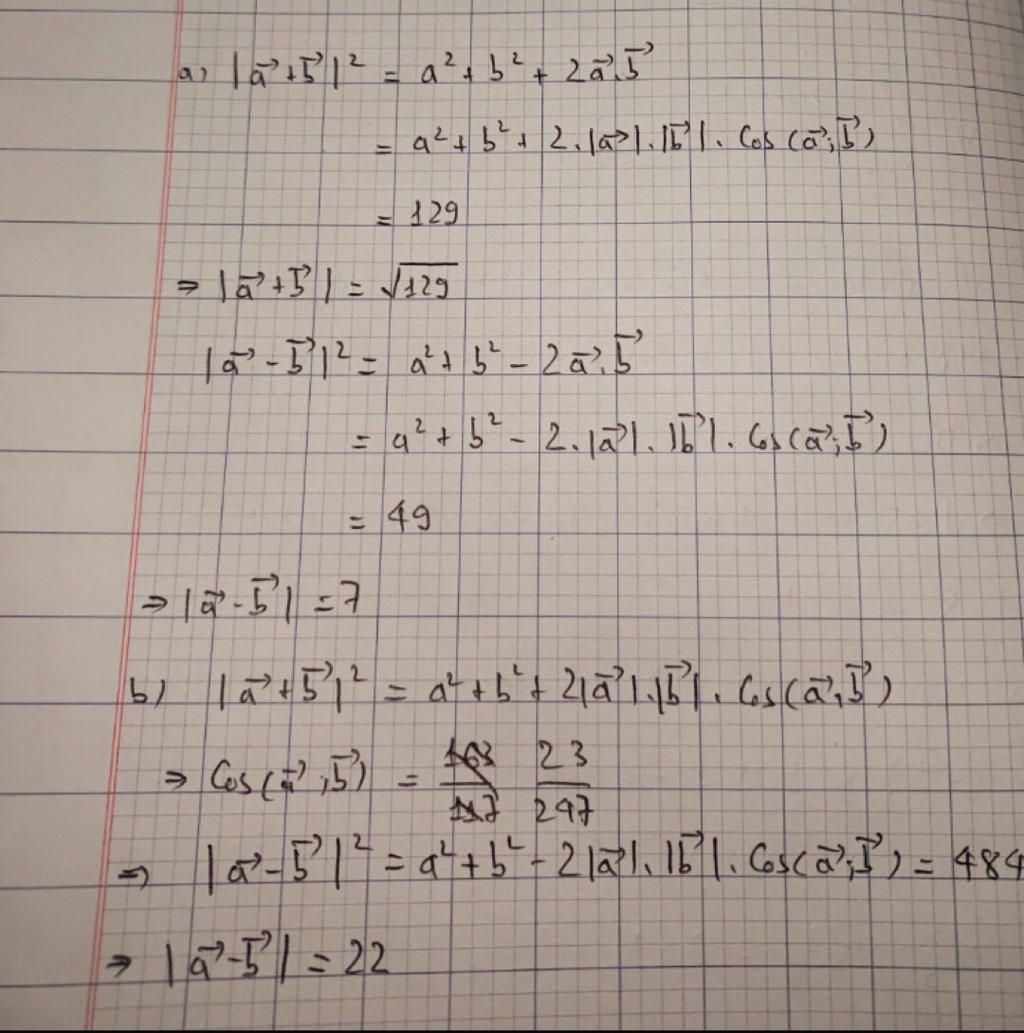 a) |a⃗ + b⃗|² = a² + b² + 2a⃗.b⃗
= a² + b² + 2.|a⃗|.|b⃗|. Cos(a⃗;b⃗)
= 129
⇒ |a⃗ + b⃗| = √129
|a⃗ - b⃗|² = a² + b² - 2a⃗.b⃗
= a² + b² - 2.|a⃗|.|b⃗|. Cos(a⃗;b⃗)
= 49
⇒ |a⃗ - b⃗| = 7
b) |a⃗ + b⃗|² = a² + b² + 2|a⃗|.|b⃗|. Cos(a⃗;b⃗)
⇒ Cos(a⃗;b⃗) = 23/247
⇒ |a⃗ - b⃗|² = a² + b² - 2|a⃗|.|b⃗|. Cos(a⃗;b⃗) = 484
⇒ |a⃗ - b⃗| = 22